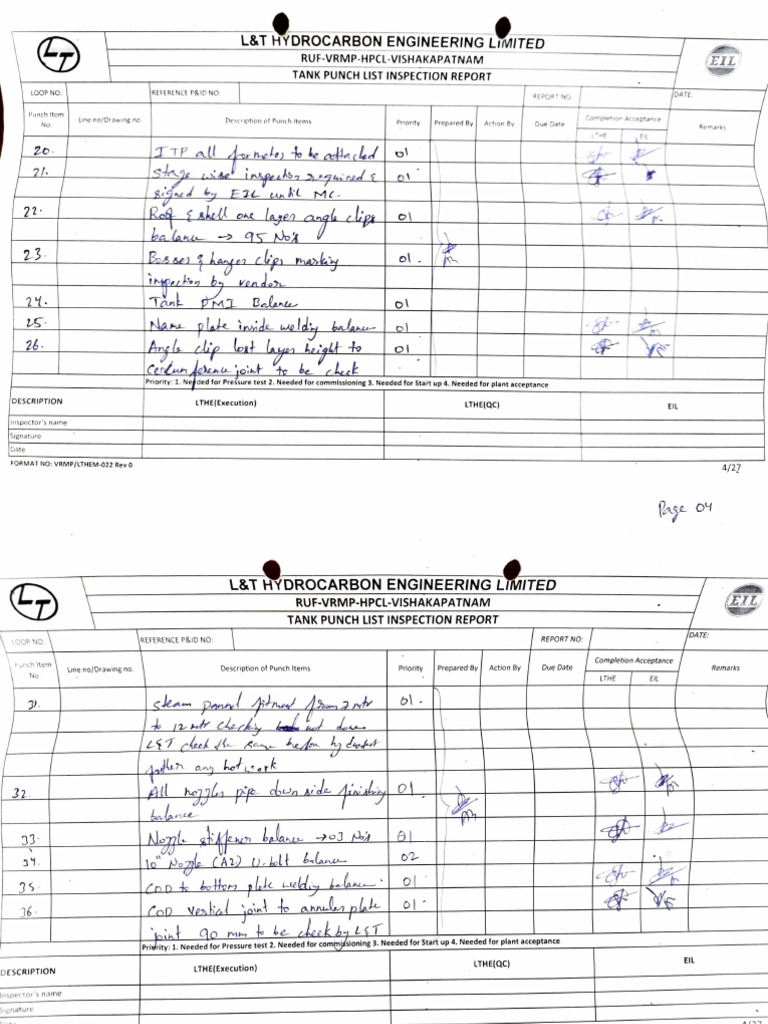 L&T HYDROCARBON ENGINEERING LIMITED
RUF-VRMP-HPCL-VISHAKAPATNAM
TANK PUNCH LIST INSPECTION REPORT
LT
EIL
LOOP NO: REFERENCE P&ID NO: REPORT NO: DATE:
Punch Item No. Line no/Drawing no. Description of Punch Items Priority Prepared By Action By Due Date Completion Acceptance Remarks
LTHE EIL
20. ITP all formetes to be attached 01
21. Stage wise inspection required & 01
signed by EIL until MC.
22. Roof & shell one layer angle clips 01
balance → 95 No's
23. Bosses & hanger clips marking 01.
inspection by vendor
24. Tank PMI Balance 01
25. Name plate inside welding balance 01
26. Angle clip last layer height to 01
joint to be check
Priority: 1. Needed for Pressure test 2. Needed for commissioning 3. Needed for Start up 4. Needed for plant acceptance
DESCRIPTION LTHE(Execution) LTHE(QC) EIL
Inspector's name
Signature
Date
FORMAT NO: VRMP/LTHEM-022 Rev 0 4/27
Page 04
L&T HYDROCARBON ENGINEERING LIMITED
RUF-VRMP-HPCL-VISHAKAPATNAM
TANK PUNCH LIST INSPECTION REPORT
LT
EIL
LOOP NO: REFERENCE P&ID NO: REPORT NO: DATE:
Punch Item No. Line no/Drawing no. Description of Punch Items Priority Prepared By Action By Due Date Completion Acceptance Remarks
LTHE EIL
31. Steam fitment from 2 mtr 01.
to 12 mtr checking not done
L&T check the same before
further any hot work
32. All nozzles pipe down side finishing 01.
balance
33. Nozzle stiffener balance → 03 No's 01
34. 10" Nozzle (A2) U-bolt balance 02
35. COD to bottom plate welding balance. 01
36. COD vertical joint to annular plate 01.
joint 90 mm to be check by L&T
Priority: 1. Needed for Pressure test 2. Needed for commissioning 3. Needed for Start up 4. Needed for plant acceptance
DESCRIPTION LTHE(Execution) LTHE(QC) EIL
Inspector's name
Signature